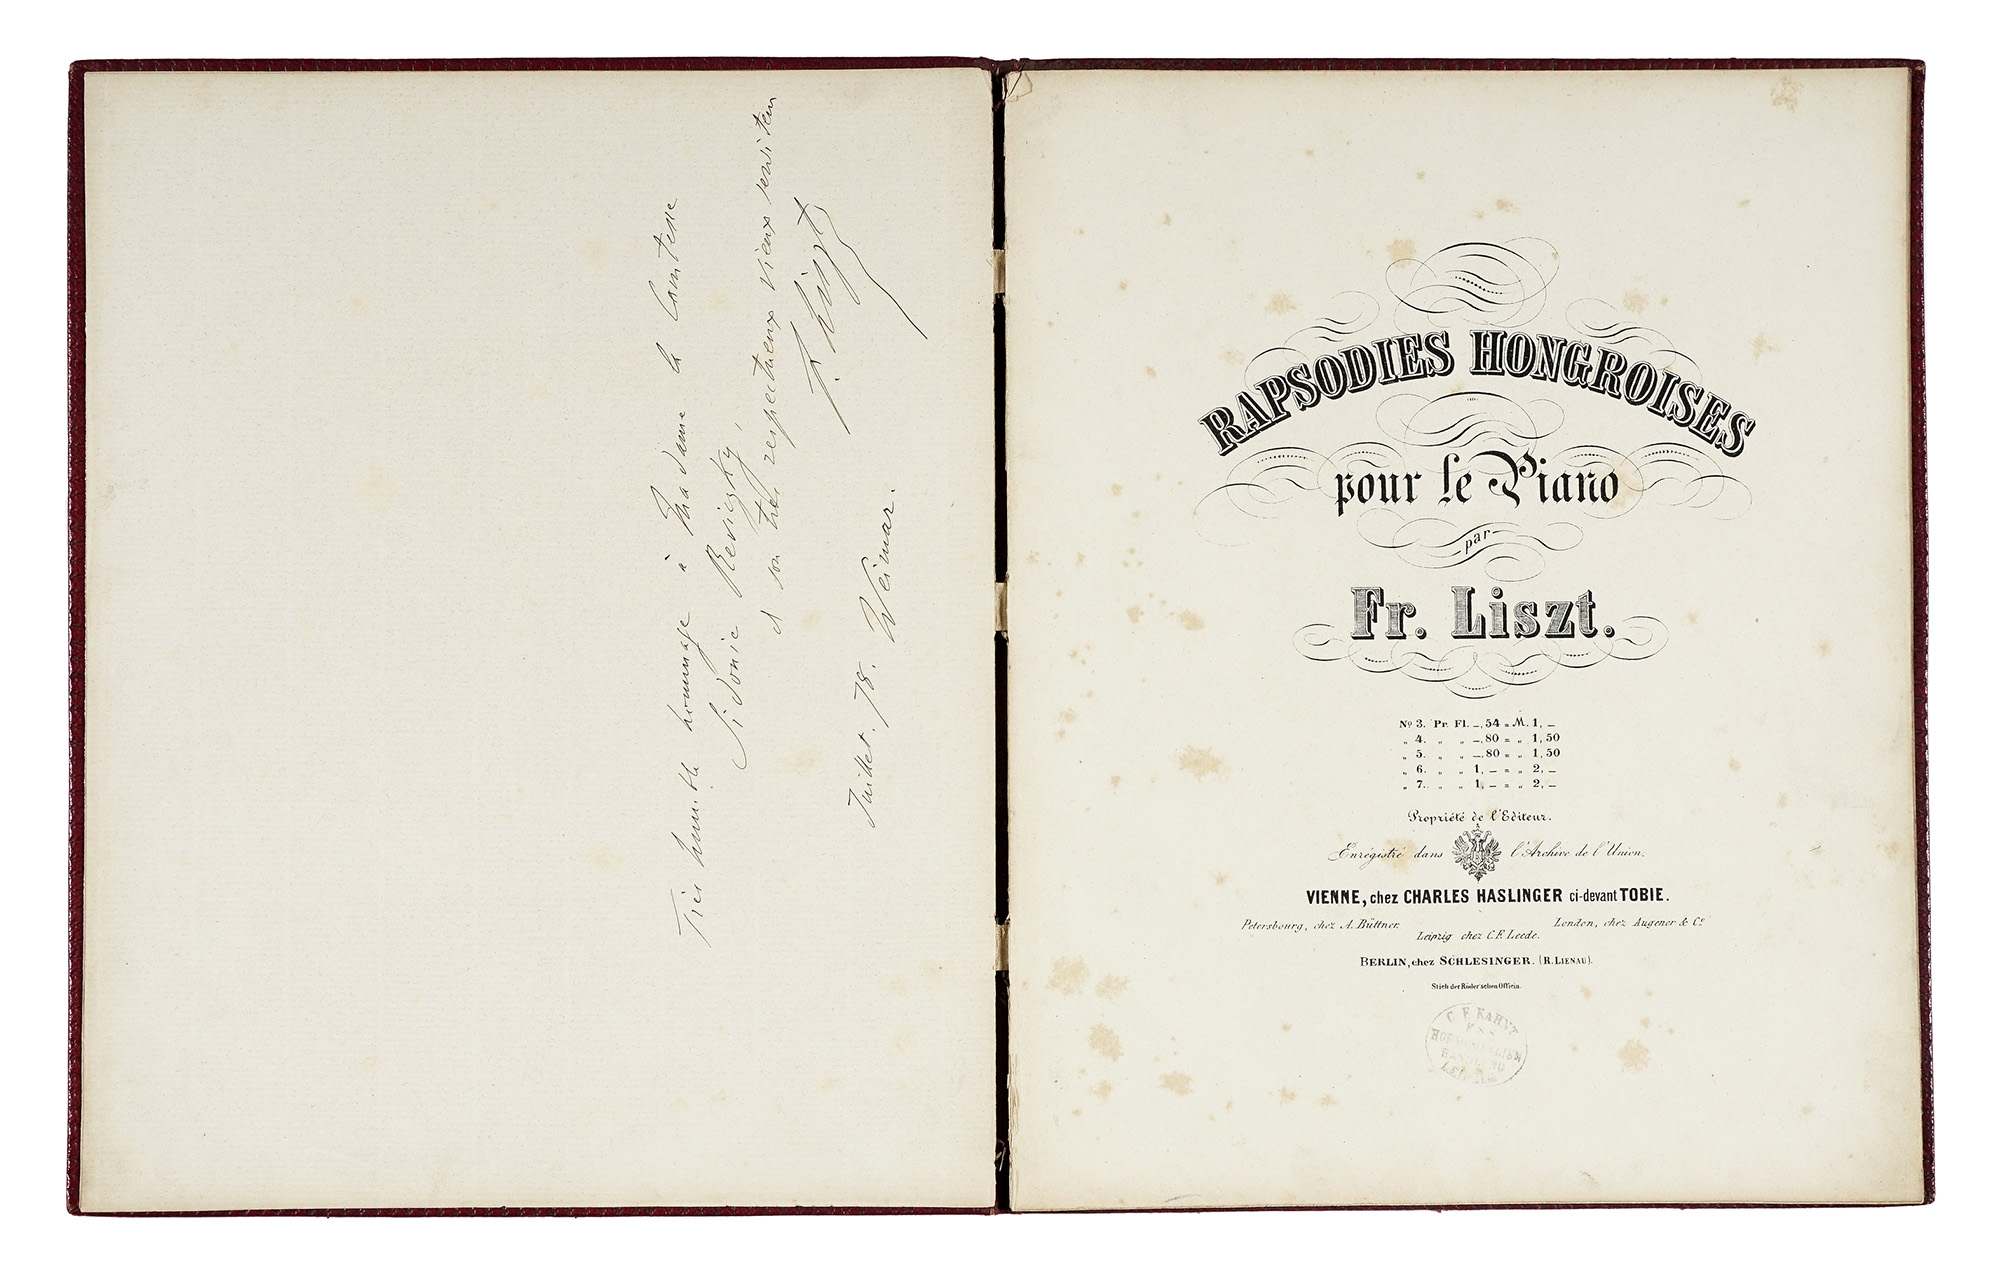 Très humble hommage à Madame la Comtesse
Sidonie Reviczky,
et son très respectueux vieux serviteur
F. Liszt
Juillet. 78. Weimar.
RAPSODIES HONGROISES
pour le Piano
par
Fr. Liszt.
No 3. Pr. Fl. _, 54 = M. 1, _
„ 4. „ „ _, 80 = „ 1, 50
„ 5. „ „ _, 80 = „ 1, 50
„ 6. „ „ 1, _ = „ 2, _
„ 7. „ „ 1, _ = „ 2, _
Propriété de l'Editeur.
Enrégistré dans l'Archive de l'Union.
VIENNE, chez CHARLES HASLINGER ci-devant TOBIE.
Petersbourg, chez A. Büttner. London, chez Augener & Co.
Leipzig chez C. F. Leede.
BERLIN, chez SCHLESINGER. (R. LIENAU).
Stich der Röder'schen Officin.
C F KAHNT
LEIPZIG